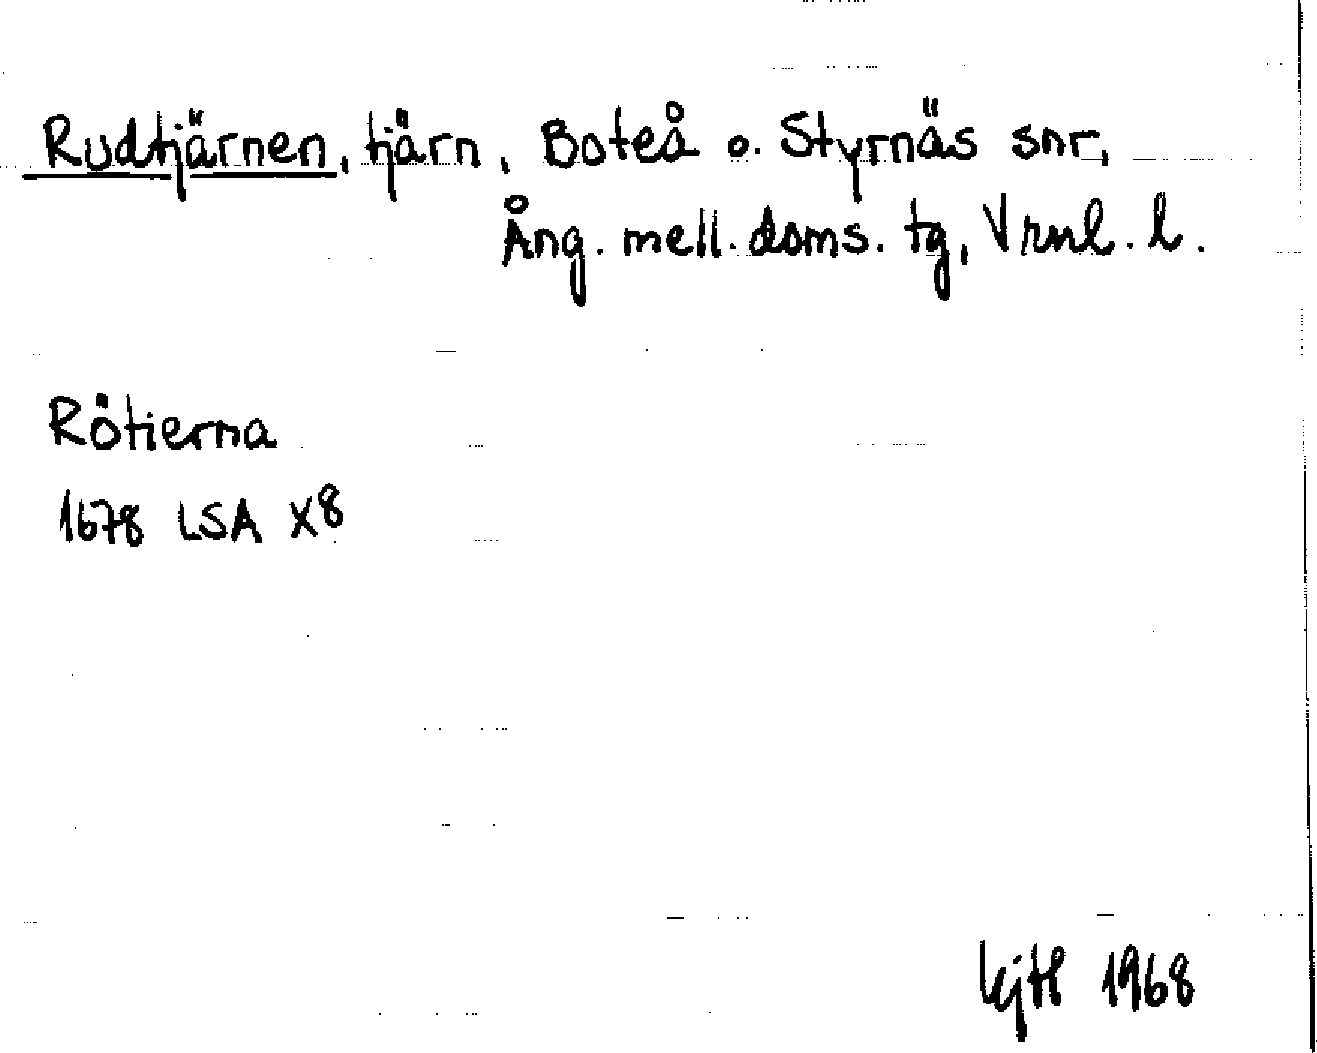 Rudtjärnen, tjärn, Boteå o. Styrnäs snr,
Ång. mell. doms. tg, Vrnl. l.
Rötierna
1678 LSA X8
1968